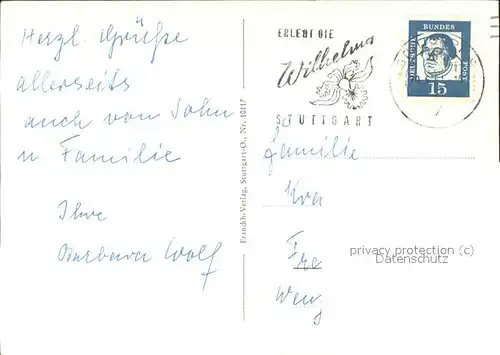 Herzl. Grüße
allerseits
auch von Sohn
u Familie
Ihre
Barbara Wolf
Franckh-Verlag, Stuttgart-O., Nr. 10117
ERLEBT DIE
Wilhelma
STUTTGART
DEUTSCHE
BUNDES
POST
15
Familie
Kra
Fre
Weng
privacy protection (c)
Datenschutz